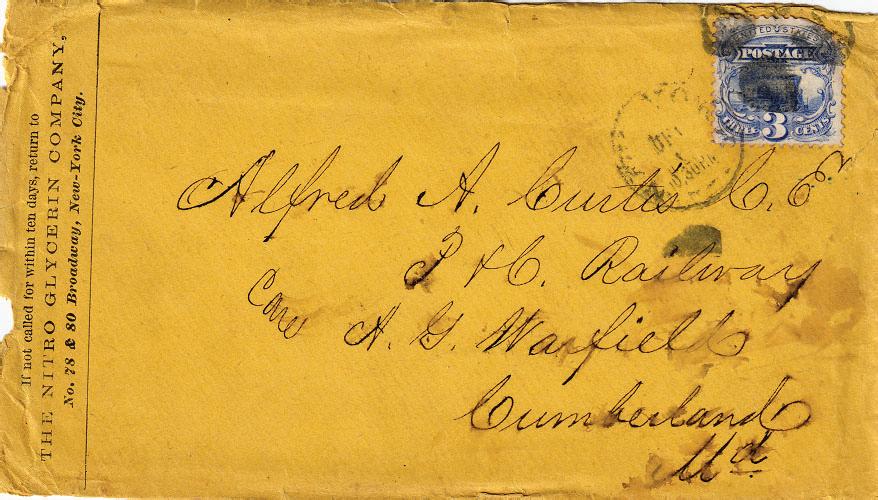 If not called for within ten days, return to
THE NITRO GLYCERIN COMPANY,
No. 78 & 80 Broadway, New-York City.
UNITED STATES
POSTAGE
THREE 3 CENTS
Alfred A. Curtis C. E.
P & C. Railway
Care
A. G. Warfield
Cumberland
Md